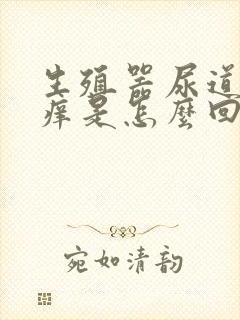 生殖器尿道
痒是怎麽回
宛如清韵